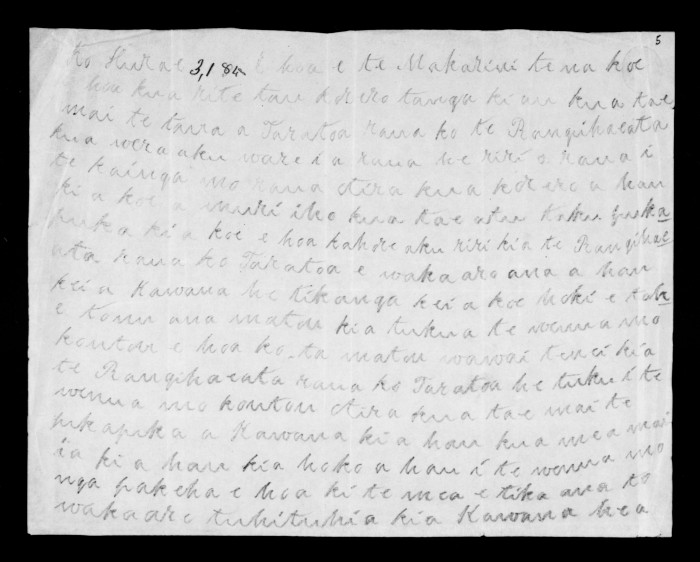 5
ko Hurae 3,1 84 E hoa e te Makarini tena koe
hoa kua rite tau korero tanga ki au kua tae
mai te taua a Taratoa raua ko te Rangihaeata
kua wera aku ware i a raua he riri o raua i
te kainga mo raua otira kua korero a hau
ki a koe a muri iho kua tae atu taku puka
puka ki a koe e hoa kahore aku riri kia te Rangihae
ata raua ko Taratoa e wakaaro ana a hau
kei a Kawana he tikanga kei a koe hoki e
e tonu ana matou kia tukua te wenua mo
koutou e hoa ko ta matou wawai tenei kia
te Rangihaeata raua ko Taratoa he tuku i te
wenua mo koutou otira kua tae mai te
pukapuka a Kawana ki a hau kua mea mai
ia ki a hau kia hoko a hau i te wenua mo
nga pakeha e hoa ki te mea e tika ana to
wakaaro tuhituhia kia Kawana hea